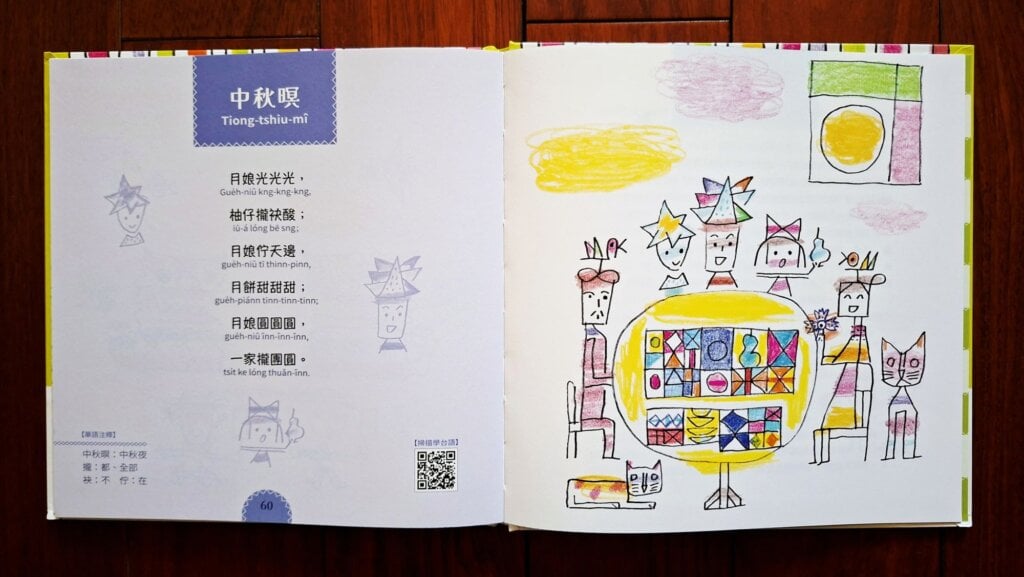 中秋暝
Tiong-tshiu-mî
月娘光光光，
Gue̍h-niû kng-kng-kng,
柚仔攏袂酸；
iū-á lóng bē sng;
月娘佇天邊，
gue̍h-niû tī thinn-pinn,
月餅甜甜甜；
gue̍h-piánn tinn-tinn-tinn;
月娘圓圓圓，
gue̍h-niû înn-înn-înn,
一家攏團圓。
tsi̍t ke lóng thuân-înn.
【華語注釋】
中秋暝：中秋夜
攏：都、全部
袂：不　佇：在
【掃描學台語】
60